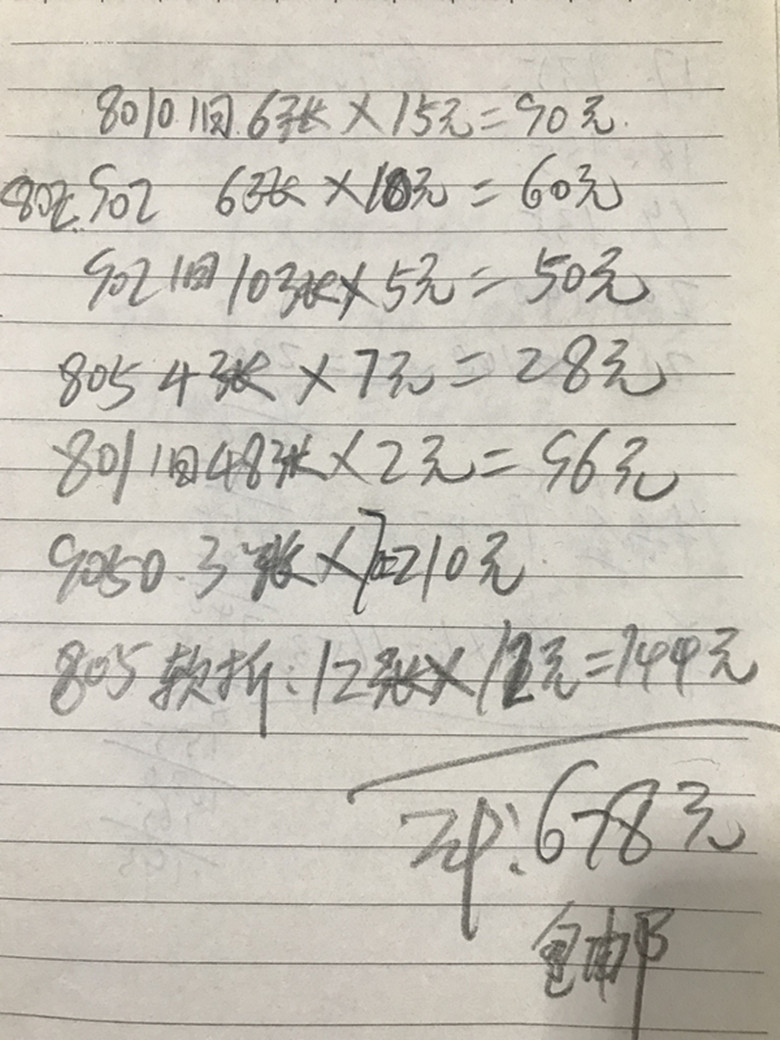 8010旧.6张×15元=90元.
802.902 6张×10元=60元
902旧10张×5元=50元
805 4张×7元=28元
801旧48张×2元=96元
9050.3张×70=210元
805软折:12张×12元=144元
计:678元
包邮